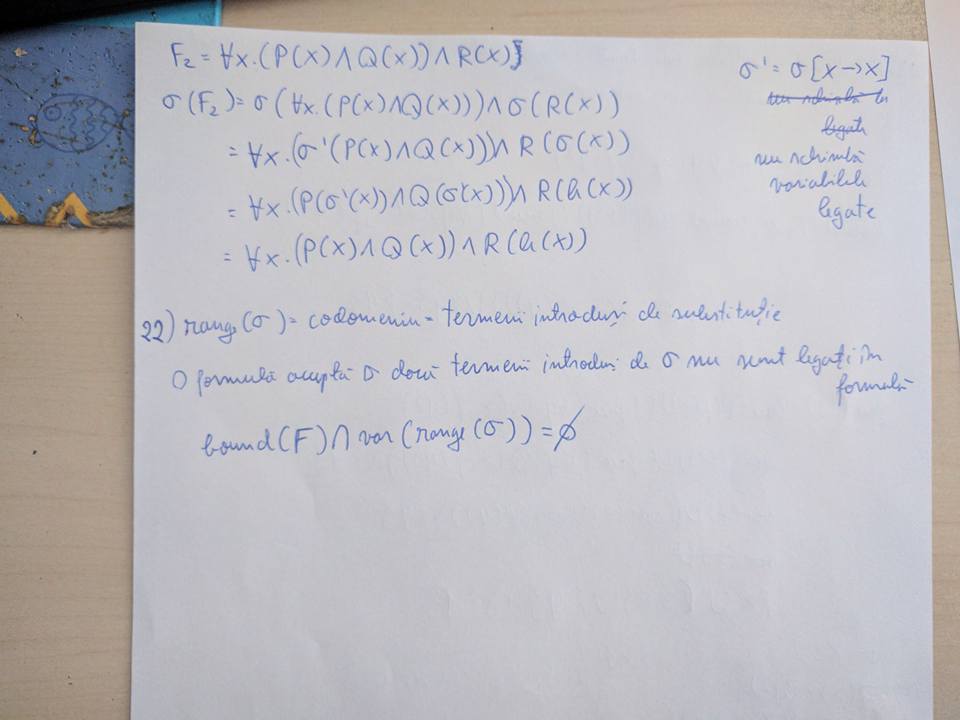 F₂ = ∀x.(P(x)∧Q(x))∧R(x)
σ(F₂) = σ(∀x.(P(x)∧Q(x)))∧σ(R(x))
= ∀x.(σ'(P(x)∧Q(x)))∧R(σ(x))
= ∀x.(P(σ'(x))∧Q(σ'(x)))∧R(h(x))
= ∀x.(P(x)∧Q(x))∧R(h(x))
σ' = σ[x→x]
nu schimbă
legate
nu schimbă
variabilele
legate
22) range(σ) = codomeniu = termeni introduși de substituție
O formulă acceptă σ dacă termeni introduși de σ nu sunt legați în
formulă
bound(F) ∩ var(range(σ)) = ∅